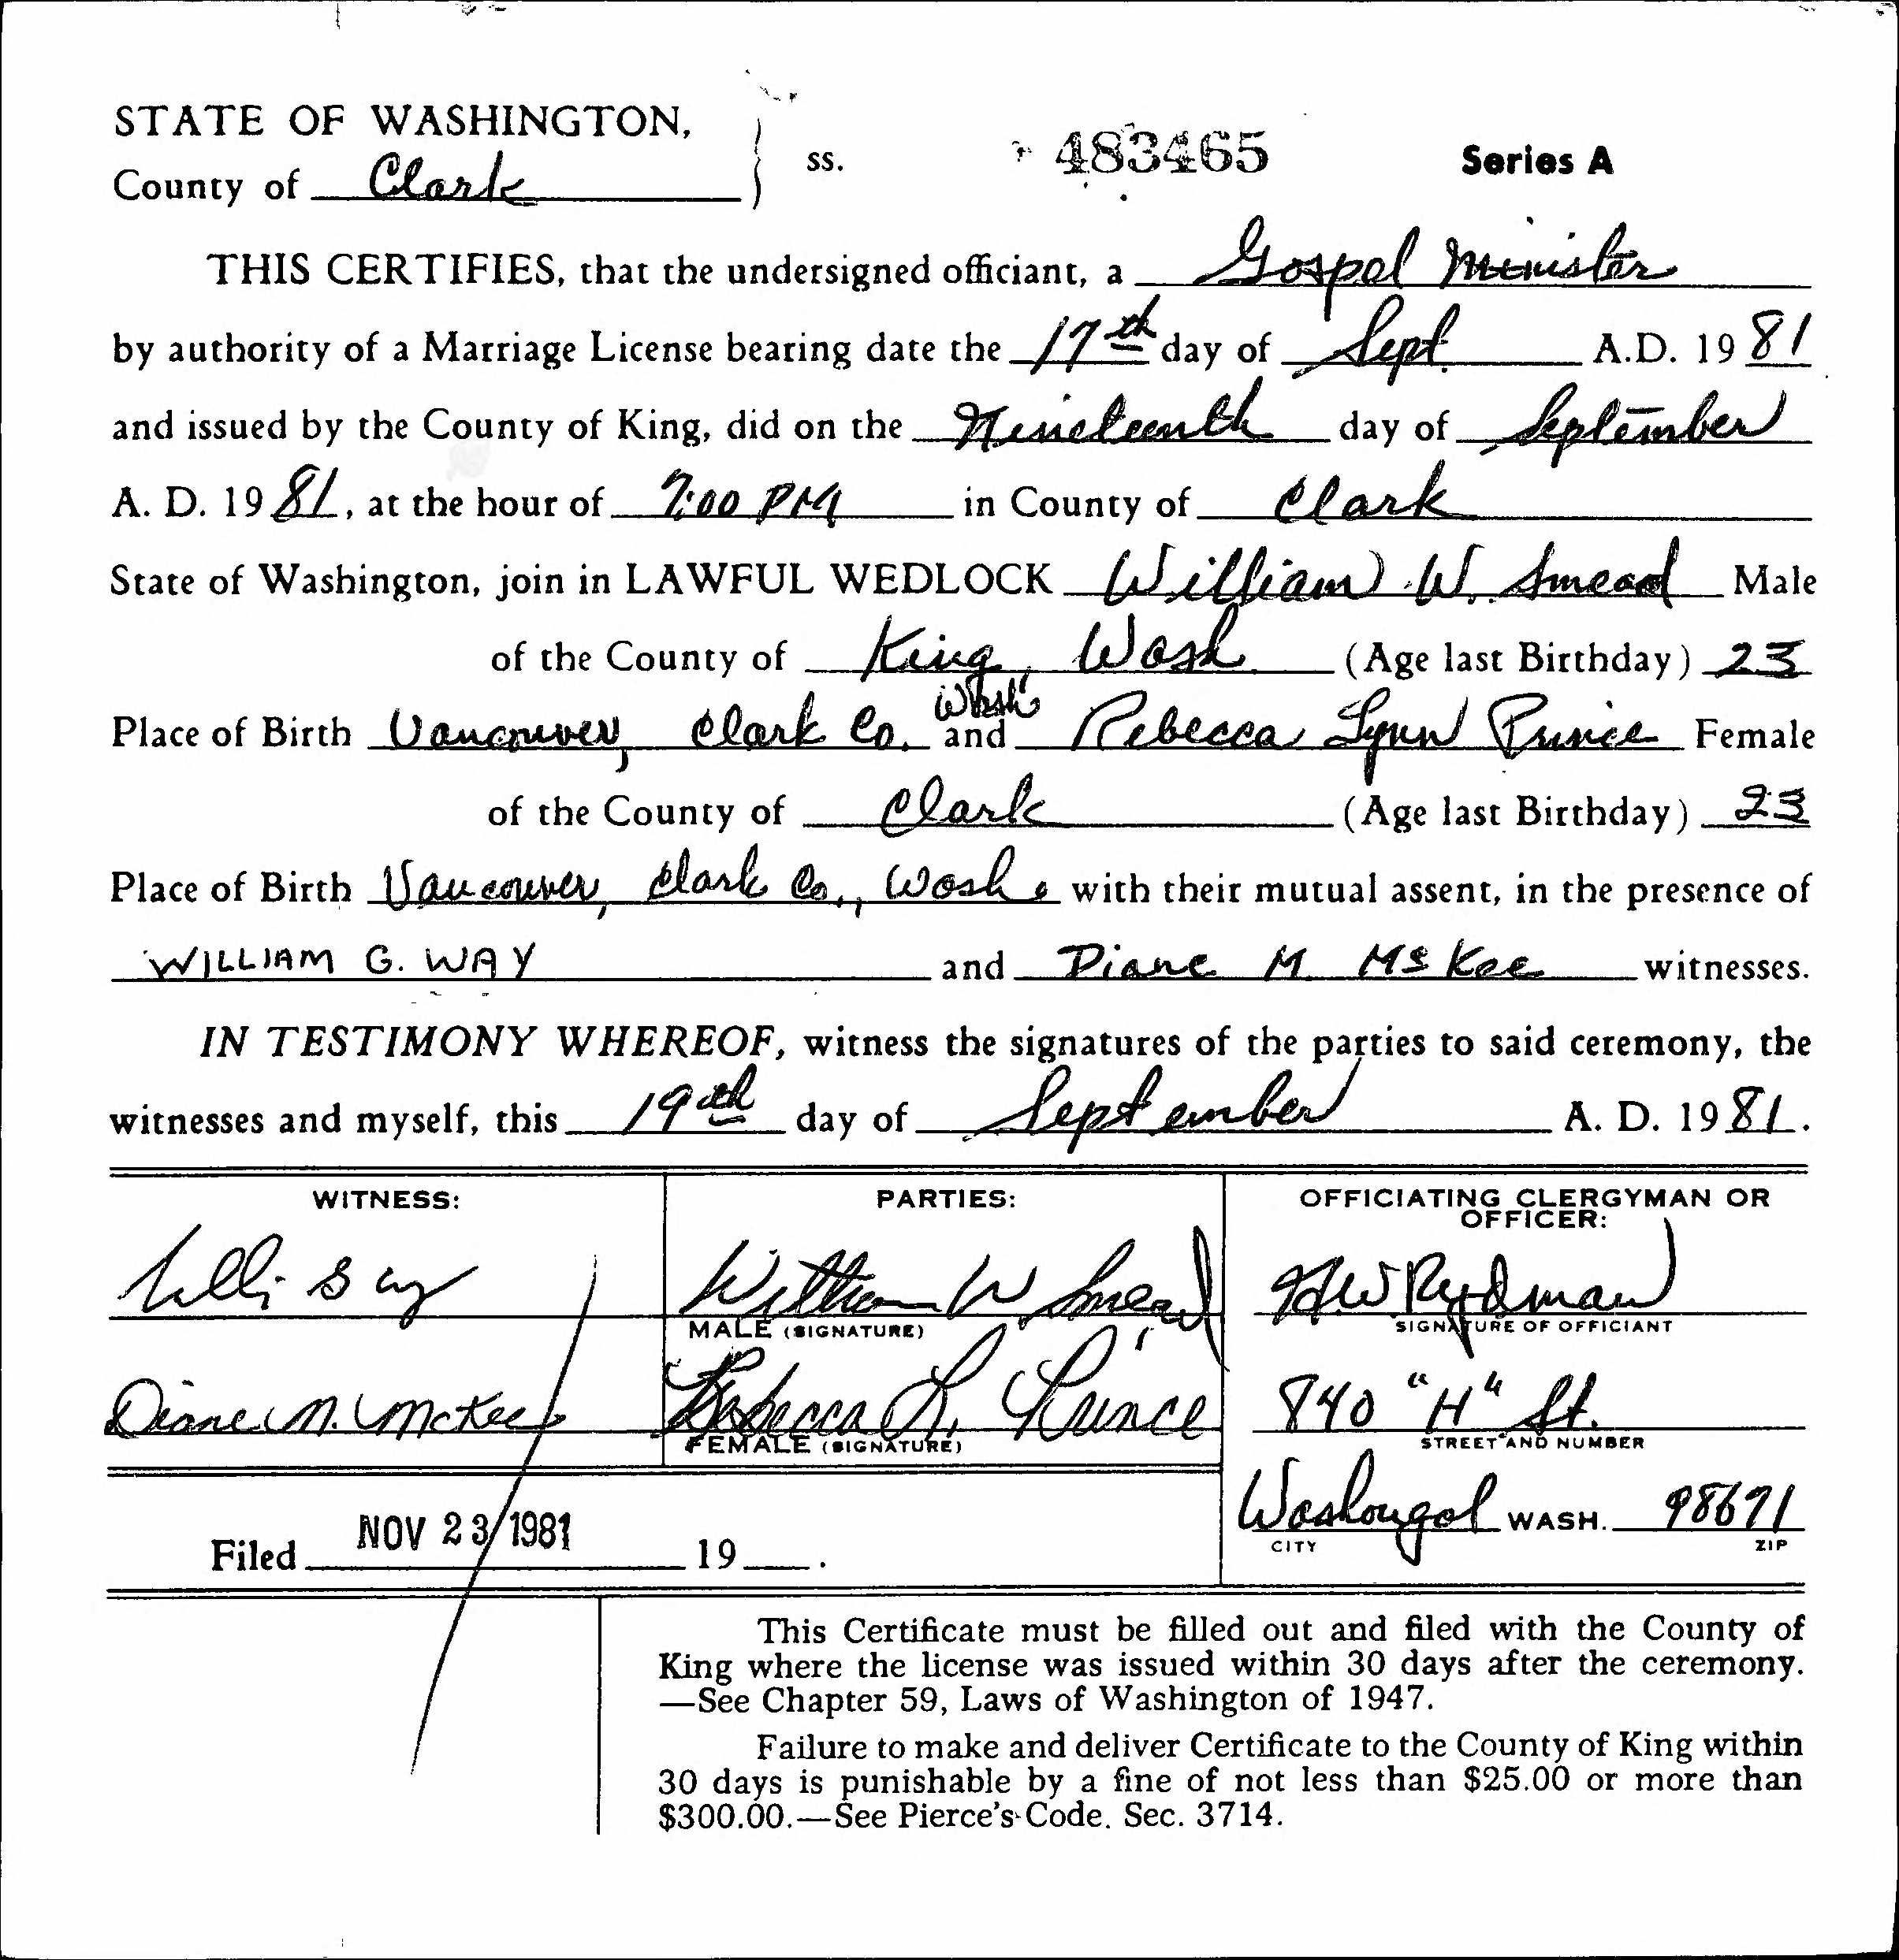 STATE OF WASHINGTON,
County of Clark
ss.
483465
Series A
THIS CERTIFIES, that the undersigned officiant, a Gospel Minister
by authority of a Marriage License bearing date the 17th day of Sept. A.D. 1981
and issued by the County of King, did on the Nineteenth day of September
A. D. 1981, at the hour of 7:00 PM in County of Clark
State of Washington, join in LAWFUL WEDLOCK William W. Smead Male
of the County of King, Wash. (Age last Birthday) 23
Place of Birth Vancouver, Clark Co. Wash and Rebecca Lynn Prince Female
of the County of Clark (Age last Birthday) 23
Place of Birth Vancouver, Clark Co., Wash. with their mutual assent, in the presence of
WILLIAM G. WAY and Diane M. McKee witnesses.
IN TESTIMONY WHEREOF, witness the signatures of the parties to said ceremony, the
witnesses and myself, this 19th day of September A. D. 1981.
WITNESS:
Diane M. McKee
PARTIES:
William W Smead
MALE (SIGNATURE)
Rebecca L. Prince
FEMALE (SIGNATURE)
OFFICIATING CLERGYMAN OR
OFFICER:
HW Rydman
SIGNATURE OF OFFICIANT
840 "H" St.
STREET AND NUMBER
Washougal WASH. 98671
CITY ZIP
Filed NOV 23 1981 19 .
This Certificate must be filled out and filed with the County of
King where the license was issued within 30 days after the ceremony.
—See Chapter 59, Laws of Washington of 1947.
Failure to make and deliver Certificate to the County of King within
30 days is punishable by a fine of not less than $25.00 or more than
$300.00.—See Pierce's Code. Sec. 3714.